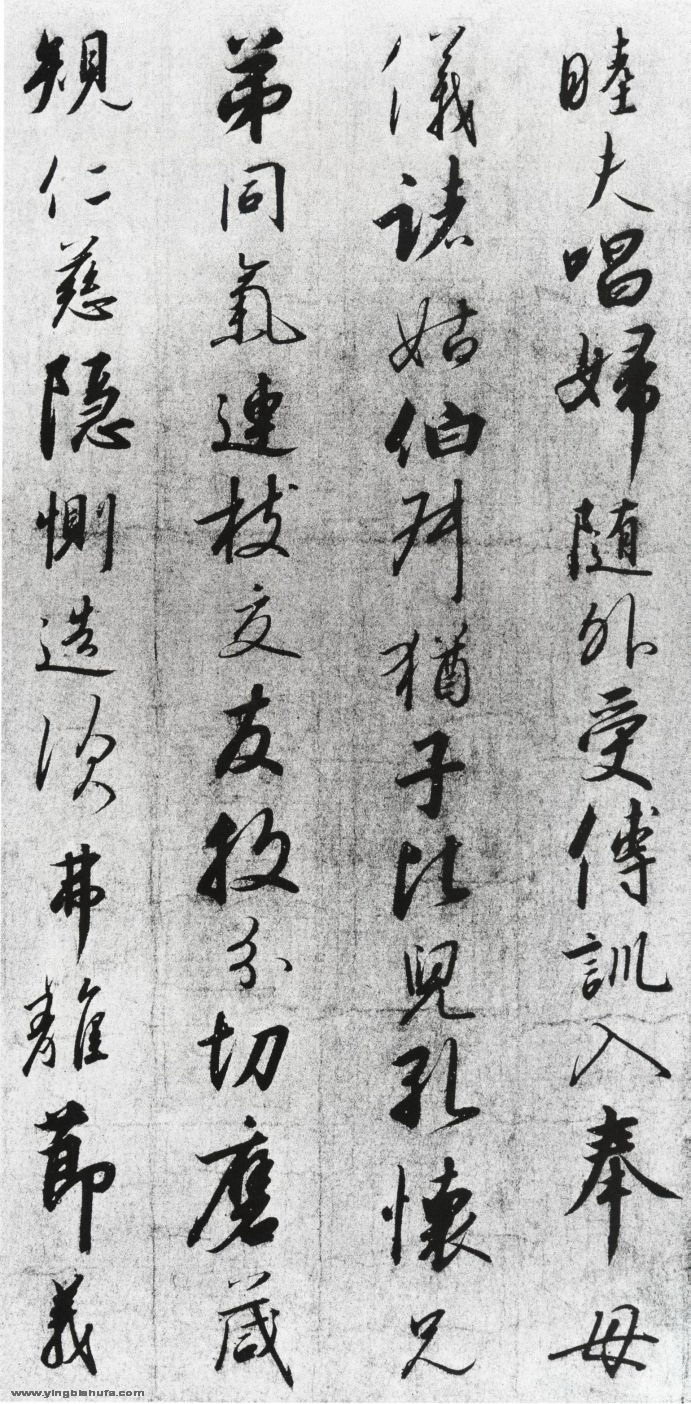 睦夫唱婦随外受傅訓入奉母
儀諸姑伯叔猶子比兒孔懷兄
弟同氣連枝交友投分切磨箴
規仁慈隱惻造次弗離節義
www.yingbishufa.com